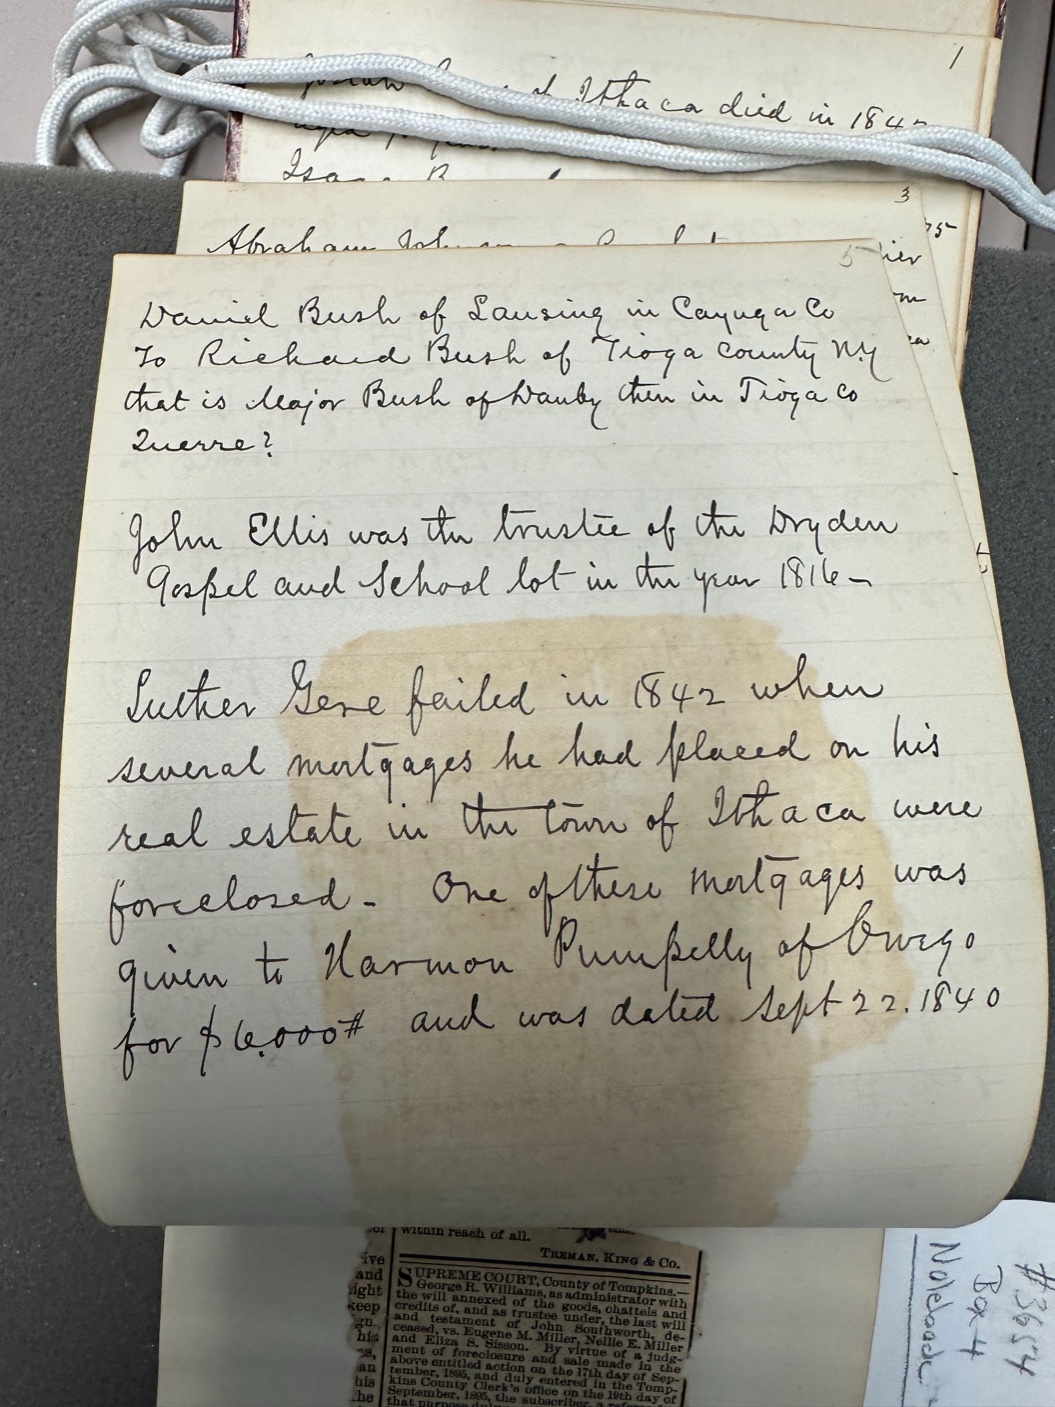 1
Ithaca died in 184
Isaac B
3
Abraham Johnson a
75
ier
5
Daniel Bush of Lansing in Cayuga Co
To Richard Bush of Tioga County N.Y
that is Major Bush of Danby then in Tioga Co
Querre?
John Ellis was the trustee of the Dryden
Gospel and School lot in the year 1816 –
Luther Gere failed in 1842 when
several mortgages he had placed on his
real estate in the town of Ithaca were
foreclosed – One of these mortgages was
given to Harmon Pumpelly of Owego
for $6,000# and was dated Sept 22. 1840
within reach of all.
TREMAN, KING & CO.
ive
and
ight
keep
gn.
his
an
his
he
SUPREME COURT, County of Tompkins.—
George R. Williams, as administrator with
the will annexed of the goods, chattels and
credits of, and as trustee under, the last will
and testament of John Southworth, de-
ceased, vs. Eugene M. Miller, Nellie E. Miller
and Eliza S. Sisson. By virtue of a judg-
ment of foreclosure and sale made in the
above entitled action on the 17th day of Sep-
tember, 1895, and duly entered in the Tomp-
kins County Clerk's office on the 19th day of
September, 1895, the subscriber, a referee
#3654
Box 4
Notebook